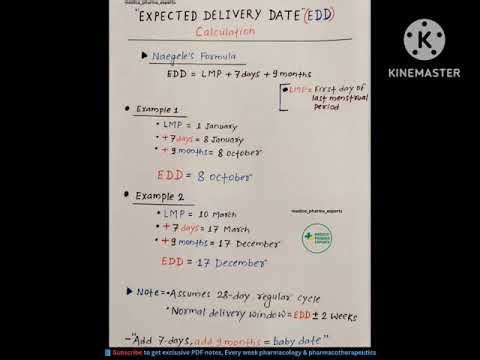 medico_pharma_experts
"EXPECTED DELIVERY DATE" (EDD)
Calculation
KINEMASTER
Naegele's Formula
EDD = LMP + 7 days + 9 months
LMP = First day of
last menstrual
period
Example 1
LMP = 1 January
+ 7 days = 8 January
+ 9 months = 8 October
EDD = 8 October
Example 2
medico_pharma_experts
LMP = 10 March
+ 7 days = 17 March
+ 9 months = 17 December
MEDICO
PHARMA
EXPERTS
EDD = 17 December
Note = • Assumes 28-day regular cycle
• Normal delivery window = EDD ± 2 weeks
- "Add 7-days, add 9 months = baby date"
Subscribe to get exclusive PDF notes, Every week pharmacology & pharmacotherapeutics